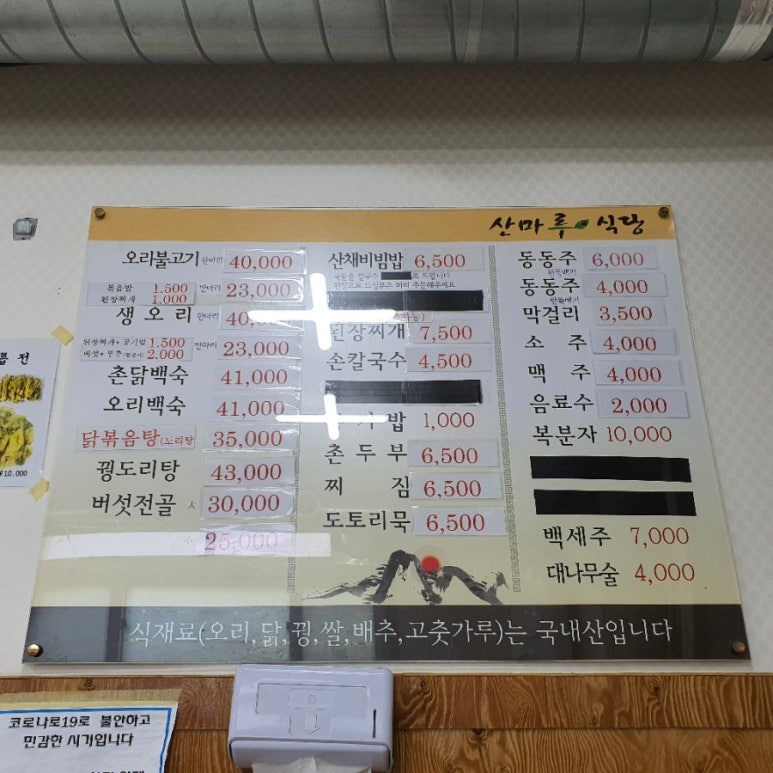 산마루 식당
오리불고기 한마리 40,000
볶음밥 1.500 반마리 23,000
된장찌개 1.000
생오리 한마리
된장찌개+공기밥 1.500 반마리 23,000
2.000
촌닭백숙 41,000
오리백숙 41,000
닭볶음탕(도리탕 35,000
꿩도리탕 43,000
버섯전골 大 30,000
小 25,000
산채비빔밥 6,500
된장찌개 7,500
손칼국수 4,500
기밥 1,000
촌두부 6,500
찌짐 6,500
도토리묵 6,500
동동주 6,000
동동주 4,000
막걸리 3,500
소주 4,000
맥주 4,000
음료수 2,000
복분자 10,000
백세주 7,000
대나무술 4,000
식재료(오리,닭,꿩,쌀,배추,고춧가루)는 국내산입니다
전
₩10,000
코로나로19로 불안하고
민감한 시기입니다